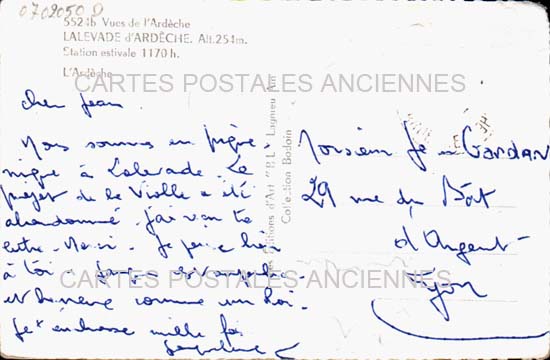 0702050
5524b Vues de l'Ardèche
LALEVADE d'ARDÈCHE. Alt.254m.
Station estivale 1170 h.
L'Ardèche
CARTES POSTALES ANCIENNES
cher Jean
Nous sommes en pique
nique à Lalevade. Le
projet de la Violle a été
abandonné. J'ai reçu ta
lettre. Merci. Je pense bien
à toi.
et heureuse comme un Roi.
Je t'embrasse mille fois
Jacqueline
Editions d'Art "P.L." Lagnieu Ain
Collection Bodoin
Monsieur Je Gardan
29 rue du Bât
d'Argent
Lyon
CARTES POSTALES ANCIENNES